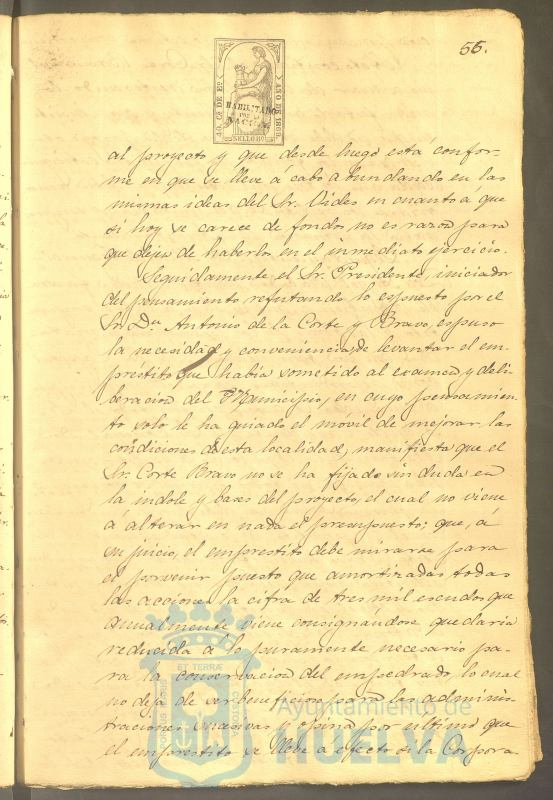 55.
40. Cs. DE Eo.
AÑO DE 1869.
HABILITADO
POR LA
NACION
SELLO 8o.
al proyecto y que desde luego está confor-
me en que se lleve á cabo abundando en las
mismas ideas del Sr. Vides en cuanto á que
si hoy se carece de fondos no es razon para
que dejen de haberlos en el inmediato ejercicio.
Seguidamente el Sr. Presidente, iniciador
del pensamiento refutando lo espuesto por el
Sr. Dn. Antonio de la Corte y Bravo, espuso
la necesidad y conveniencia de levantar el em-
préstito que habia sometido al exámen y deli-
beracion del Municipio, en cuyo pensamien-
to solo le ha guiado el móvil de mejorar las
condiciones de esta localidad, manifiesta que el
Sr. Corte Bravo no se ha fijado sin duda en
la indole y bases del proyecto, el cual no viene
á alterar en nada el presupuesto; que, á
su juicio, el empréstito debe mirarse para
el porvenir puesto que amortizadas todas
las acciones la cifra de tres mil escudos que
anualmente viene consignándose quedaria
reducida á lo puramente necesario pa-
ra la conservacion del empedrado, lo cual
no deja de ser beneficioso para las adminis-
traciones sucesivas y opina por último que
el empréstito se lleve á efecto si la Corpora-
Ayuntamiento de
HUELVA
PORTUS MARIS
ET TERRÆ
CUSTODIA